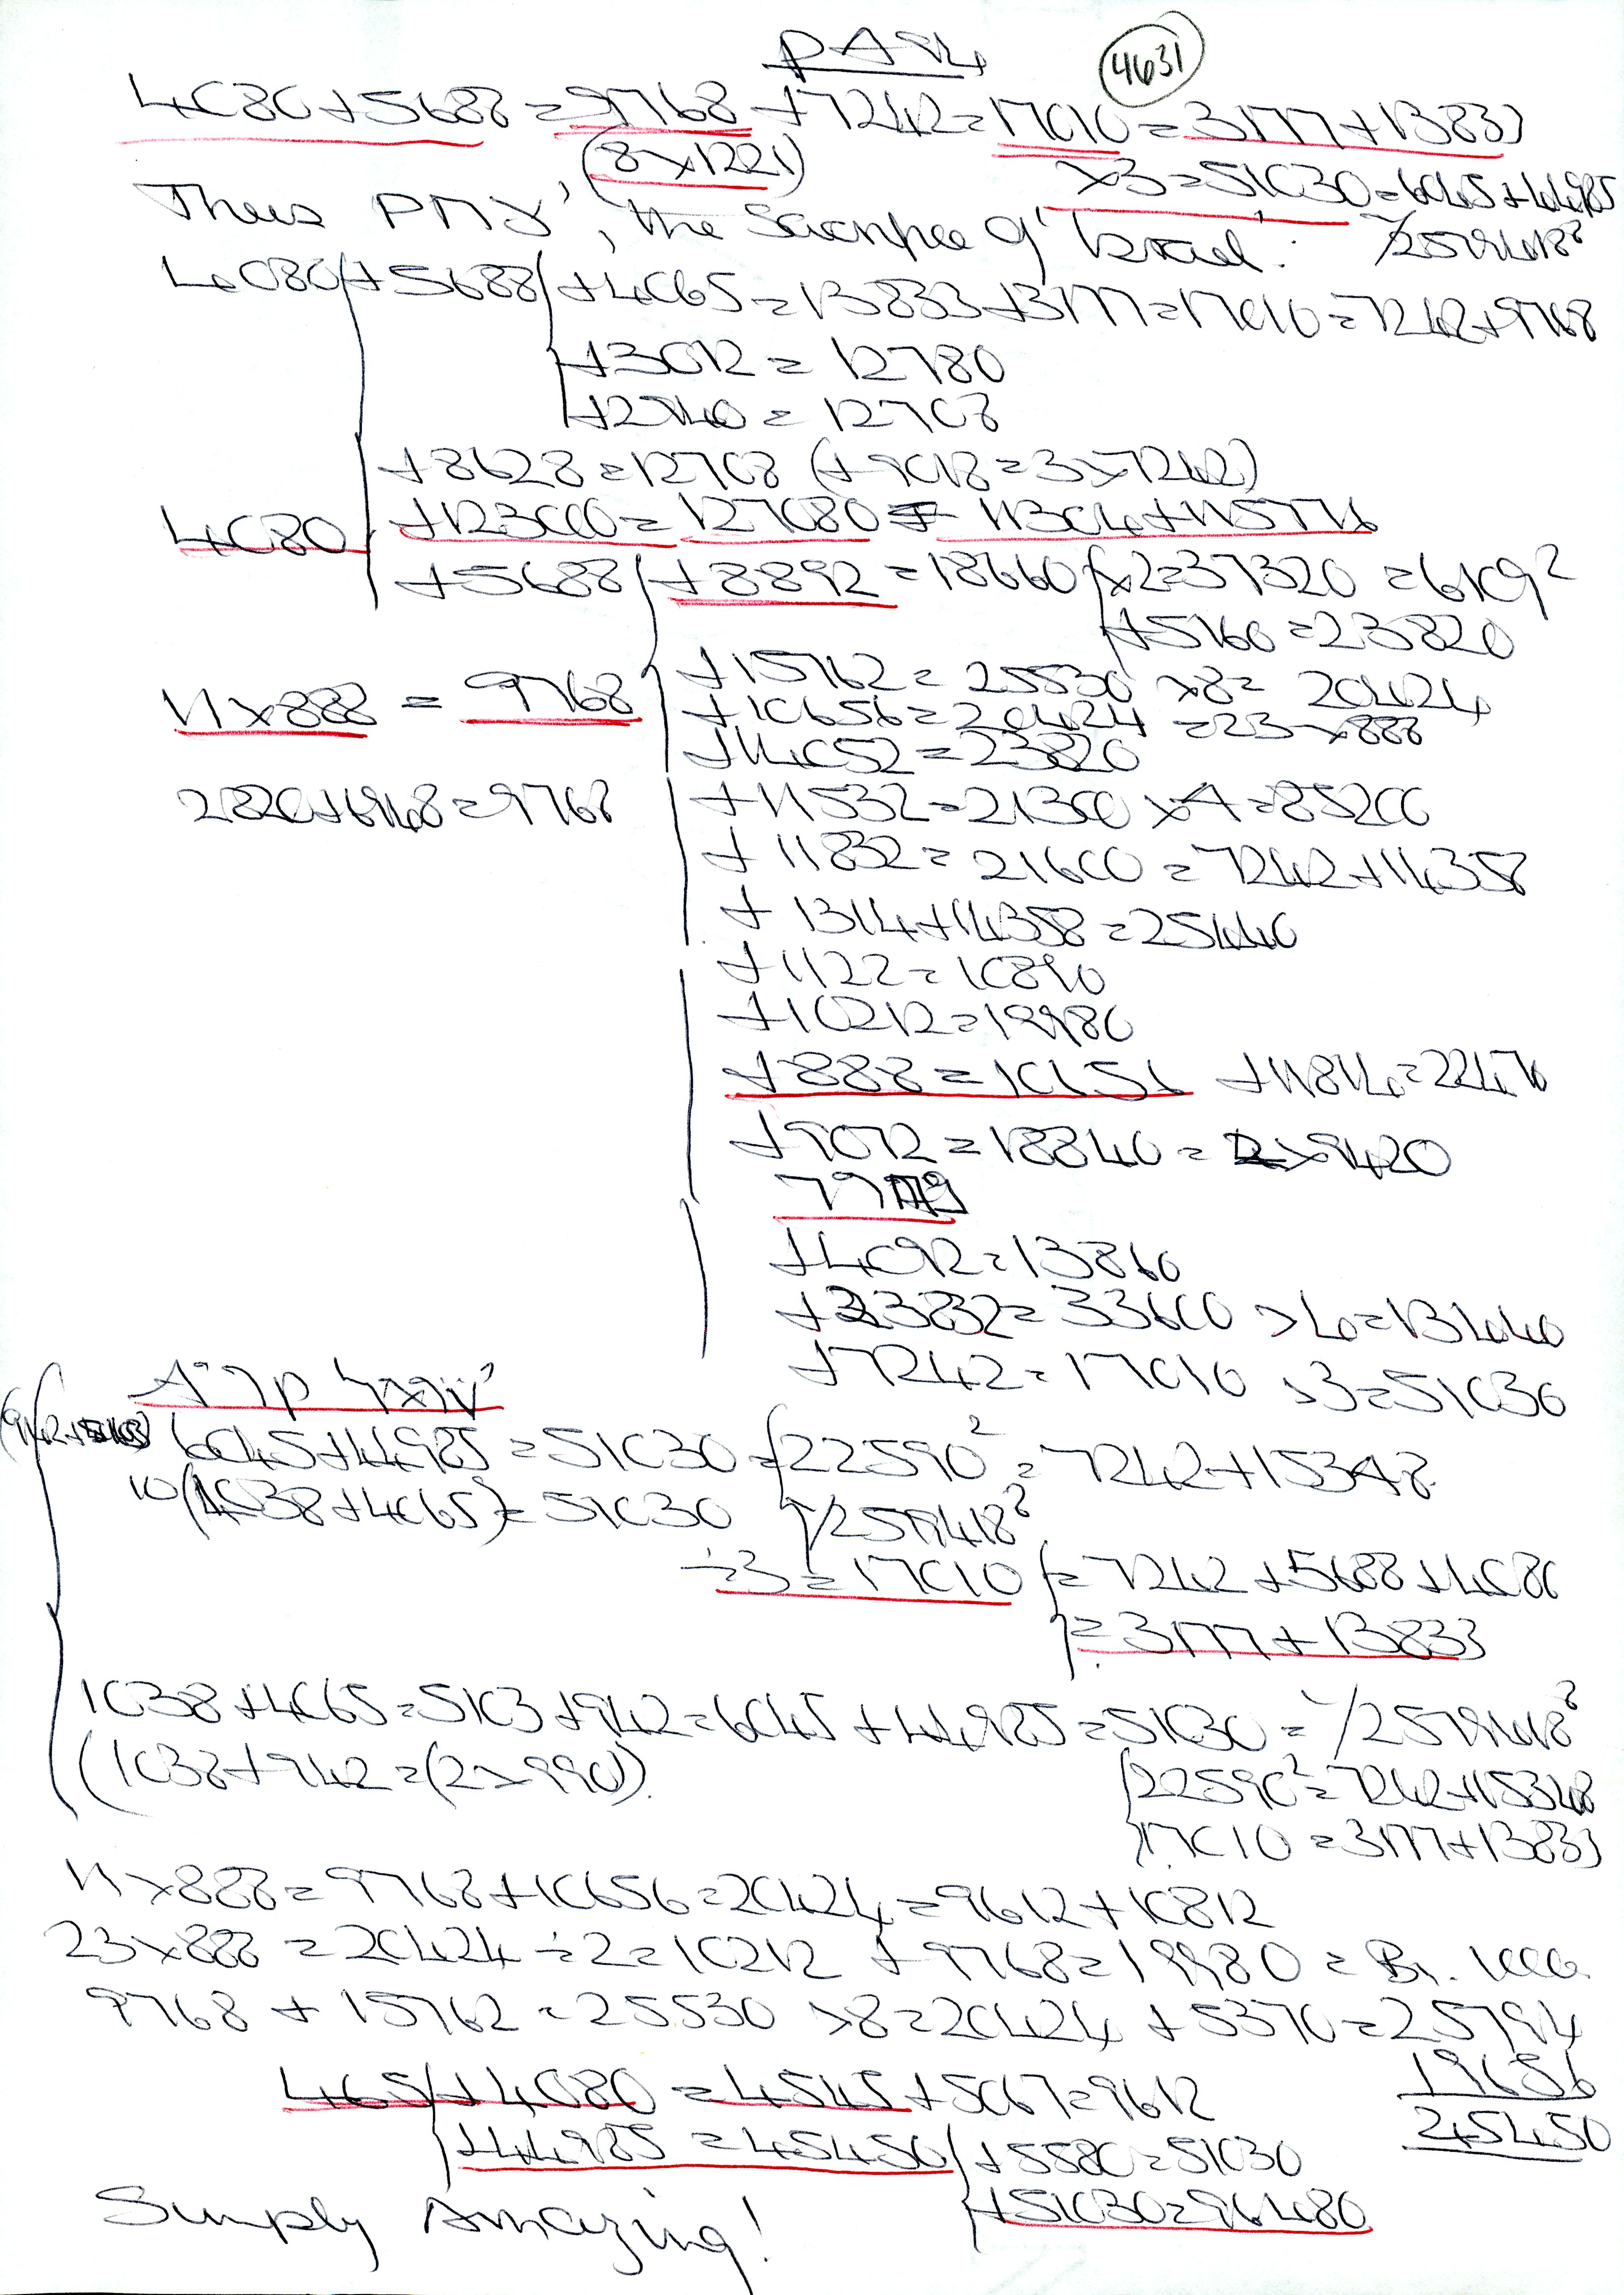 4631
4080+5688=9768+7242=17010=3177+13833
(8x1221) x3=51030=6045+44985
Thus the Sacrifice of Israel: √25794182
4080+5688+4065=13833+3177=17010=7242+9768
+3012=12780
+2940=12708
+8628=12708 (+9018=3x7242)
4080 +123000=127080=11304+115776
+5688+8892=18660 x2=37320=6109²
+5160=23820
11x888=9768 +15762=25530 x8=20424
+10656=20424=23x888
+14052=23820
2820+6948=9768 +11532=21300 x4=85200
+11832=21600=7242+14358
+1314+14358=25440
+1122=10890
+10212=19980
+888=10656 +11814=22470
+9072=18840=2x9420
+4092=13860
+23832=33600 x4=13440
+7242=17010 x3=51030
6045+44985=51030 22590²=7242+15348
10(1038+4065)=51030
÷3=17010=7242+5688+4080
=3177+13833
1038+4065=5103+942=6045+44985=51030
(1038+942=(2x990)) 22590²=7242+15348
17010=3177+13833
11x888=9768+10656=20424=9612+10812
23x888=20424÷2=10212+9768=19980
9768+15762=25530 x8=20424+5370=25794
465+4080=4545+5067=9612 19656
+44985=45450+5580=51030 245450
Simply Amazing! +51030=96480